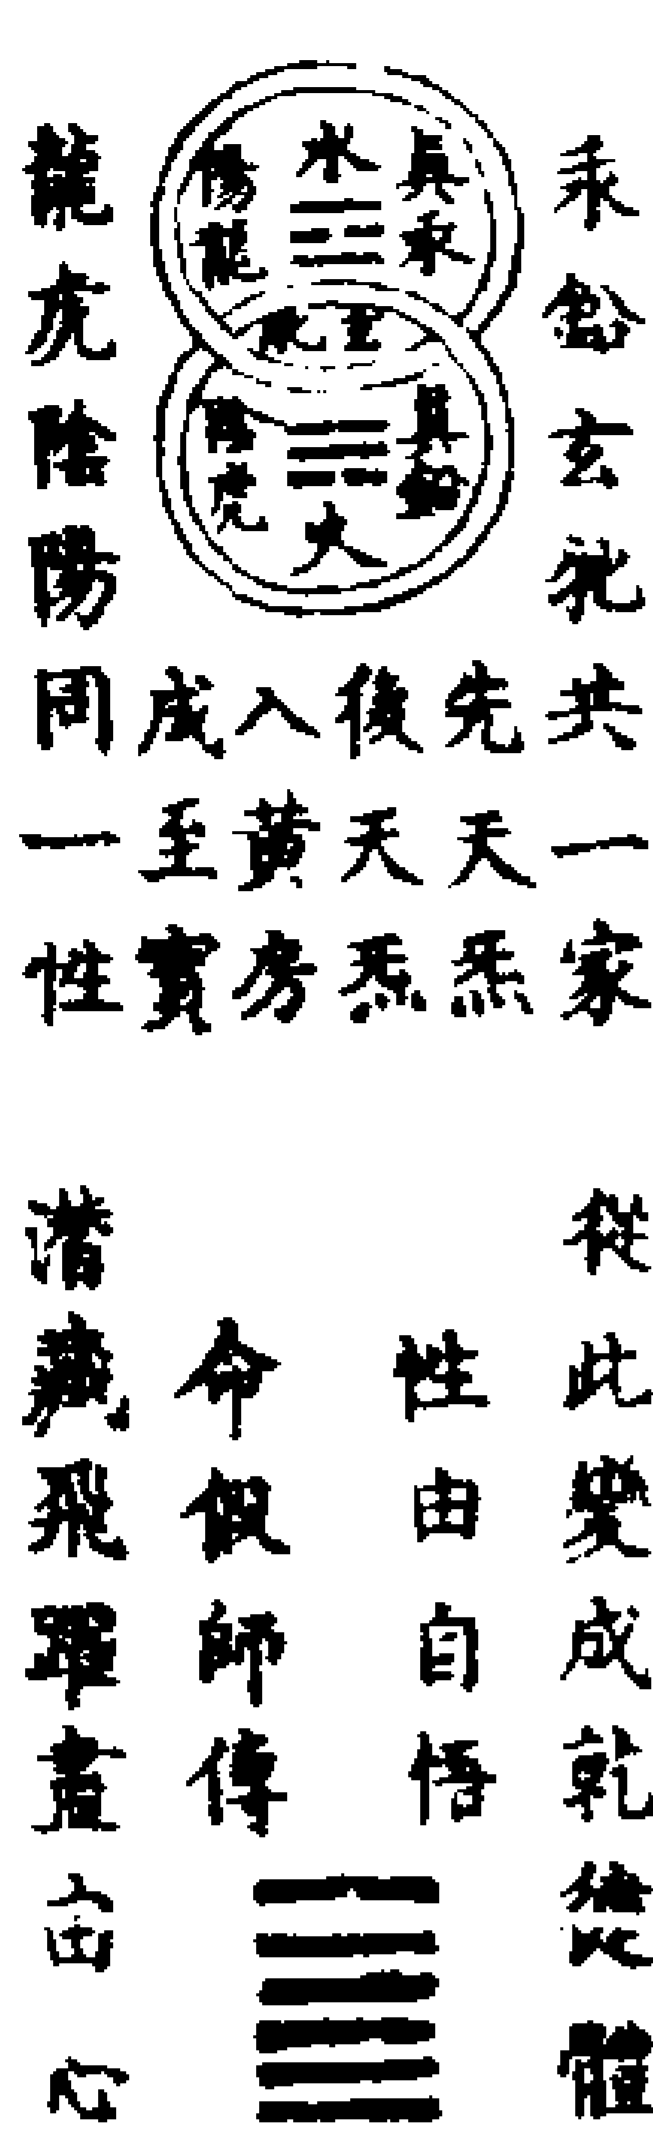 汞鉛玄牝共一家
水
眞汞
陽龍
眞鉛
陰虎
火
先天炁
後天炁
入黃房
成至寶
龍虎陰陽同一性
從此變成乾健體
性由自悟
命假師傳
潛藏飛躍盡由心